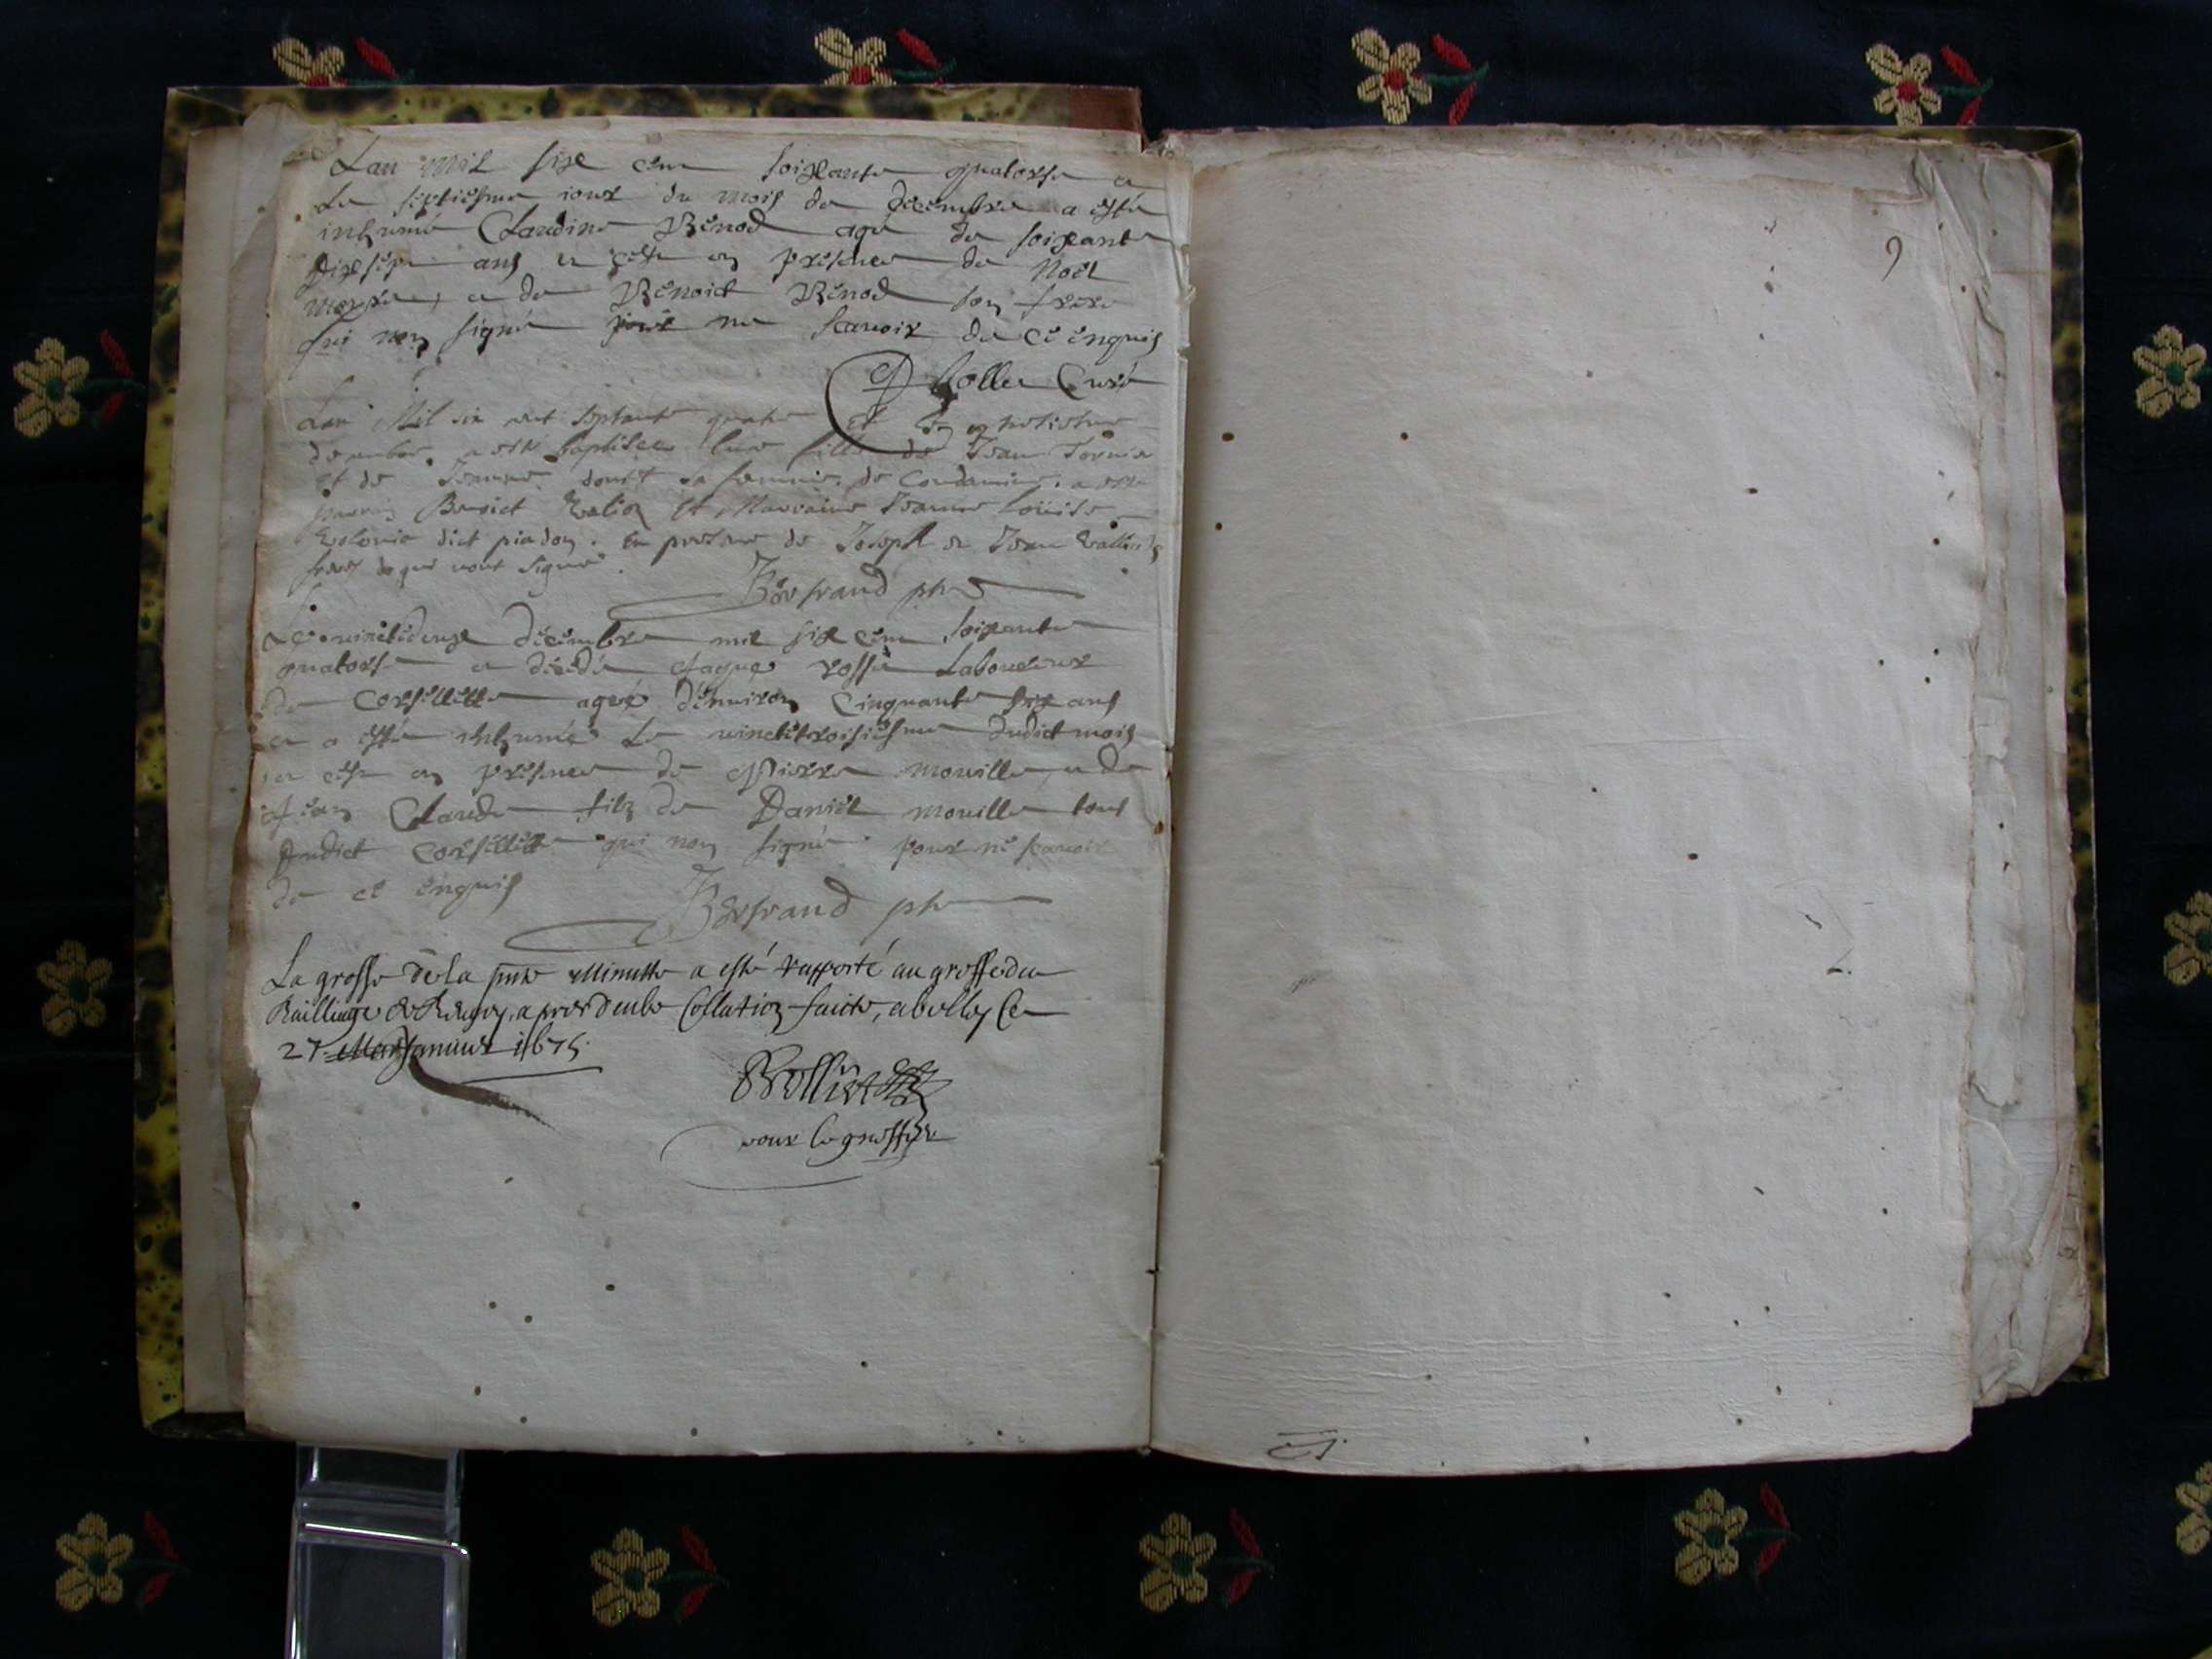 Lan mil sixe cens soixante quatorse et
Le septiesme iour du mois de decembre a esté
inhumé Claudine Benod agé de soixante
dixsept ans et cest en presence de Noël
et de Benoict Benod son frere
qui non signé pour ne scavoir de ce enquis
Rollet Curé
Lan Mil six cent septante quatre et le
decembre a este baptisee une fille de Jean
et de Jeanne sa femme de Condamine a este
parrain Benoict et Marraine Jeanne Louise
dict piadon. En presence de Joseph et Jean
freres qui nont signé
Bertrand pbre
Le vinctideuxe decembre mil sixe cens soixante
quatorse et décédé Jaque rosset Laboureur
de Corcellette agé denviron Cinquante six ans
et a esté inhumé Le vinctetroisiesme dudict mois
et cest en presence de Pierre mouille et de
Jean Claude filz de Daniel mouille tous
dudict corcellette qui non signé pour ne scavoir
de ce enquis
Bertrand pbre
La grosse de la pnte Minutte a esté rapporté au greffe du
Bailliage de Beugey, apres deube Collation faicte, a belley Ce
27. Mars Janvier 1675.
pour le greffier
9